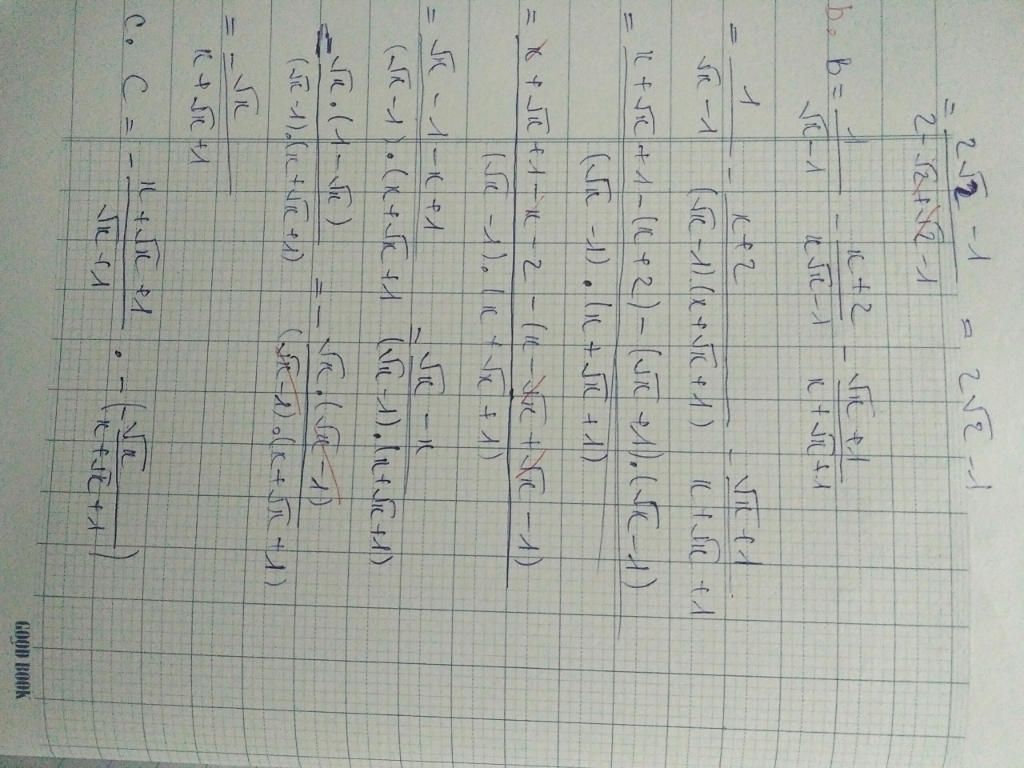 = (2√2 - 1)/(2 - √2 + √2 - 1) = 2√2 - 1
b. B = 1/(√x - 1) - (x + 2)/(x√x - 1) - (√x + 1)/(x + √x + 1)
= 1/(√x - 1) - (x + 2)/((√x - 1)(x + √x + 1)) - (√x + 1)/(x + √x + 1)
= (x + √x + 1 - (x + 2) - (√x + 1).(√x - 1))/((√x - 1).(x + √x + 1))
= (x + √x + 1 - x - 2 - (x - √x + √x - 1))/((√x - 1).(x + √x + 1))
= (√x - 1 - x + 1)/((√x - 1).(x + √x + 1) = (√x - x)/((√x - 1).(x + √x + 1))
= (√x.(1 - √x))/((√x - 1).(x + √x + 1)) = - (√x.(√x - 1))/((√x - 1).(x + √x + 1))
= (-√x)/(x + √x + 1)
c. C = - (x + √x + 1)/(√x + 1) . - (-√x/(x + √x + 1))
GOOD BOOK